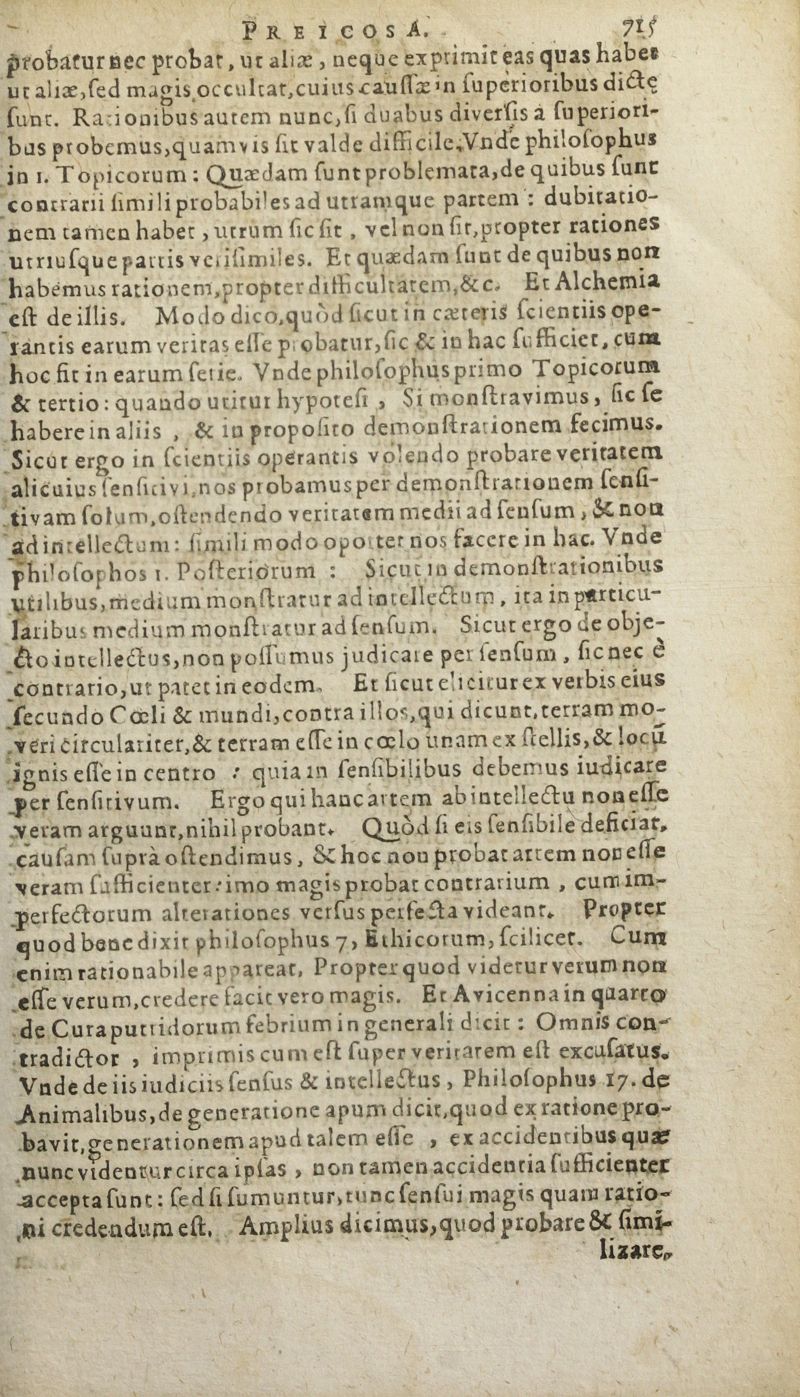 PREICOSA. 715
probatur nec probat, ut aliæ, neque exprimit eas quas habet
ut aliæ, ſed magis occultat, cuius cauſſæ in ſuperioribus dictę
ſunt. Rationibus autem nunc, ſi duabus diverſis à ſuperiori-
bus probemus, quamvis ſit valde difficile. Vnde philoſophus
in 1. Topicorum: Quædam ſunt problemata, de quibus ſunt
contrarii ſimili probabiles ad utramque partem: dubitatio-
nem tamen habet, utrùm ſic ſit, vel non ſit, propter rationes
utriuſque partis veriſimiles. Et quædam ſunt de quibus non
habemus rationem, propter difficultatem, &c. Et Alchemia
eſt de illis. Modo dico, quòd ſicut in cæteris ſcientiis ope-
rantis earum veritas eſſe probatur, ſic & in hac ſufficiet, cum
hoc ſit in earum ſerie. Vnde philoſophus primo Topicorum
& tertio: quando utitur hypoteſi, Si monſtravimus, ſic ſe
habere in aliis, & in propoſito demonſtrationem fecimus.
Sicut ergo in ſcientiis operantis volendo probare veritatem
alicuius ſenſitivi, nos probamus per demonſtrationem ſenſi-
tivam ſolum, oſtendendo veritatem medii ad ſenſum, & non
ad intellectum: ſimili modo oportet nos facere in hac. Vnde
philoſophos 1. Poſteriorum: Sicut in demonſtrationibus
utilibus, medium monſtratur ad intellectum, ita in particu-
laribus medium monſtratur ad ſenſum. Sicut ergo de obje-
cto intellectus, non poſſumus judicare per ſenſum, ſic nec è
contrario, ut patet in eodem. Et ſicut elicitur ex verbis eius
ſecundo Cœli & mundi, contra illos, qui dicunt, terram mo-
veri circulariter, & terram eſſe in cœlo unam ex ſtellis, & locū
ignis eſſe in centro: quia in ſenſibilibus debemus iudicare
per ſenſitivum. Ergo qui hanc artem ab intellectu non eſſe
veram arguunt, nihil probant. Quòd ſi eis ſenſibile deficiat,
cauſam ſuprà oſtendimus, & hoc non probat artem non eſſe
veram ſufficienter: imo magis probat contrarium, cum im-
perfectorum alterationes verſus perfecta videant. Propter
quod bene dixit philoſophus 7, Ethicorum, ſcilicet. Cum
enim rationabile appareat, Propter quod videtur verum non
eſſe verum, credere facit vero magis. Et Avicenna in quarto
de Cura putridorum febrium in generali dicit: Omnis con-
tradictor, imprimis cum eſt ſuper veritatem eſt excuſatus.
Vnde de iis iudiciis ſenſus & intellectus, Philoſophus 17. de
Animalibus, de generatione apum dicit, quod ex ratione pro-
bavit, generationem apud talem eſſe, ex accidentibus quæ
nunc videntur circa ipſas, non tamen accidentia ſufficienter
accepta ſunt: ſed ſi ſumuntur, tunc ſenſui magis quam ratio-
ni credendum eſt. Amplius dicimus, quod probare & ſimi-
lizare,